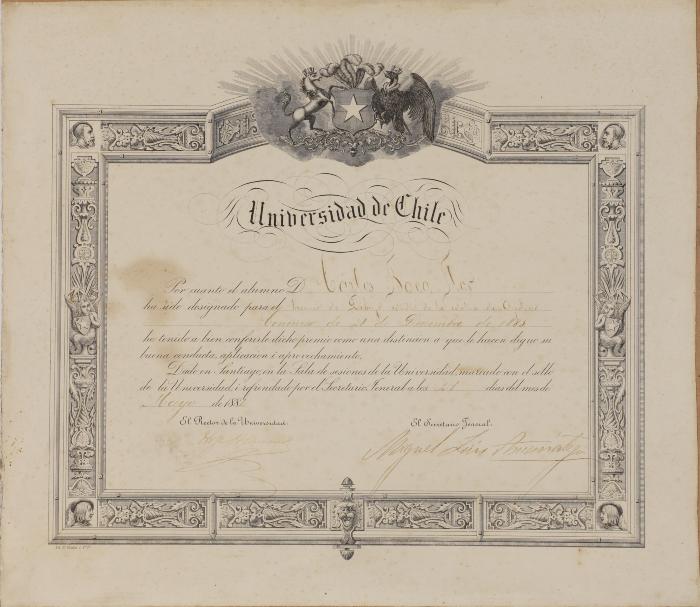 Universidad de Chile
Por cuanto el alumno D. Carlos
ha sido designado para el
de Diciembre de 188
he tenido a bien conferirle dicho premio como una distincion a que le hacen digno su
buena conducta, aplicacion i aprovechamiento.
Dado en Santiago, en la Sala de sesiones de la Universidad marcado con el sello
de la Universidad i refrendado por el Secretario Jeneral a los 21 dias del mes de
Mayo de 188
El Rector de la Universidad.
El Secretario Jeneral.
Miguel Luis Amunátegui